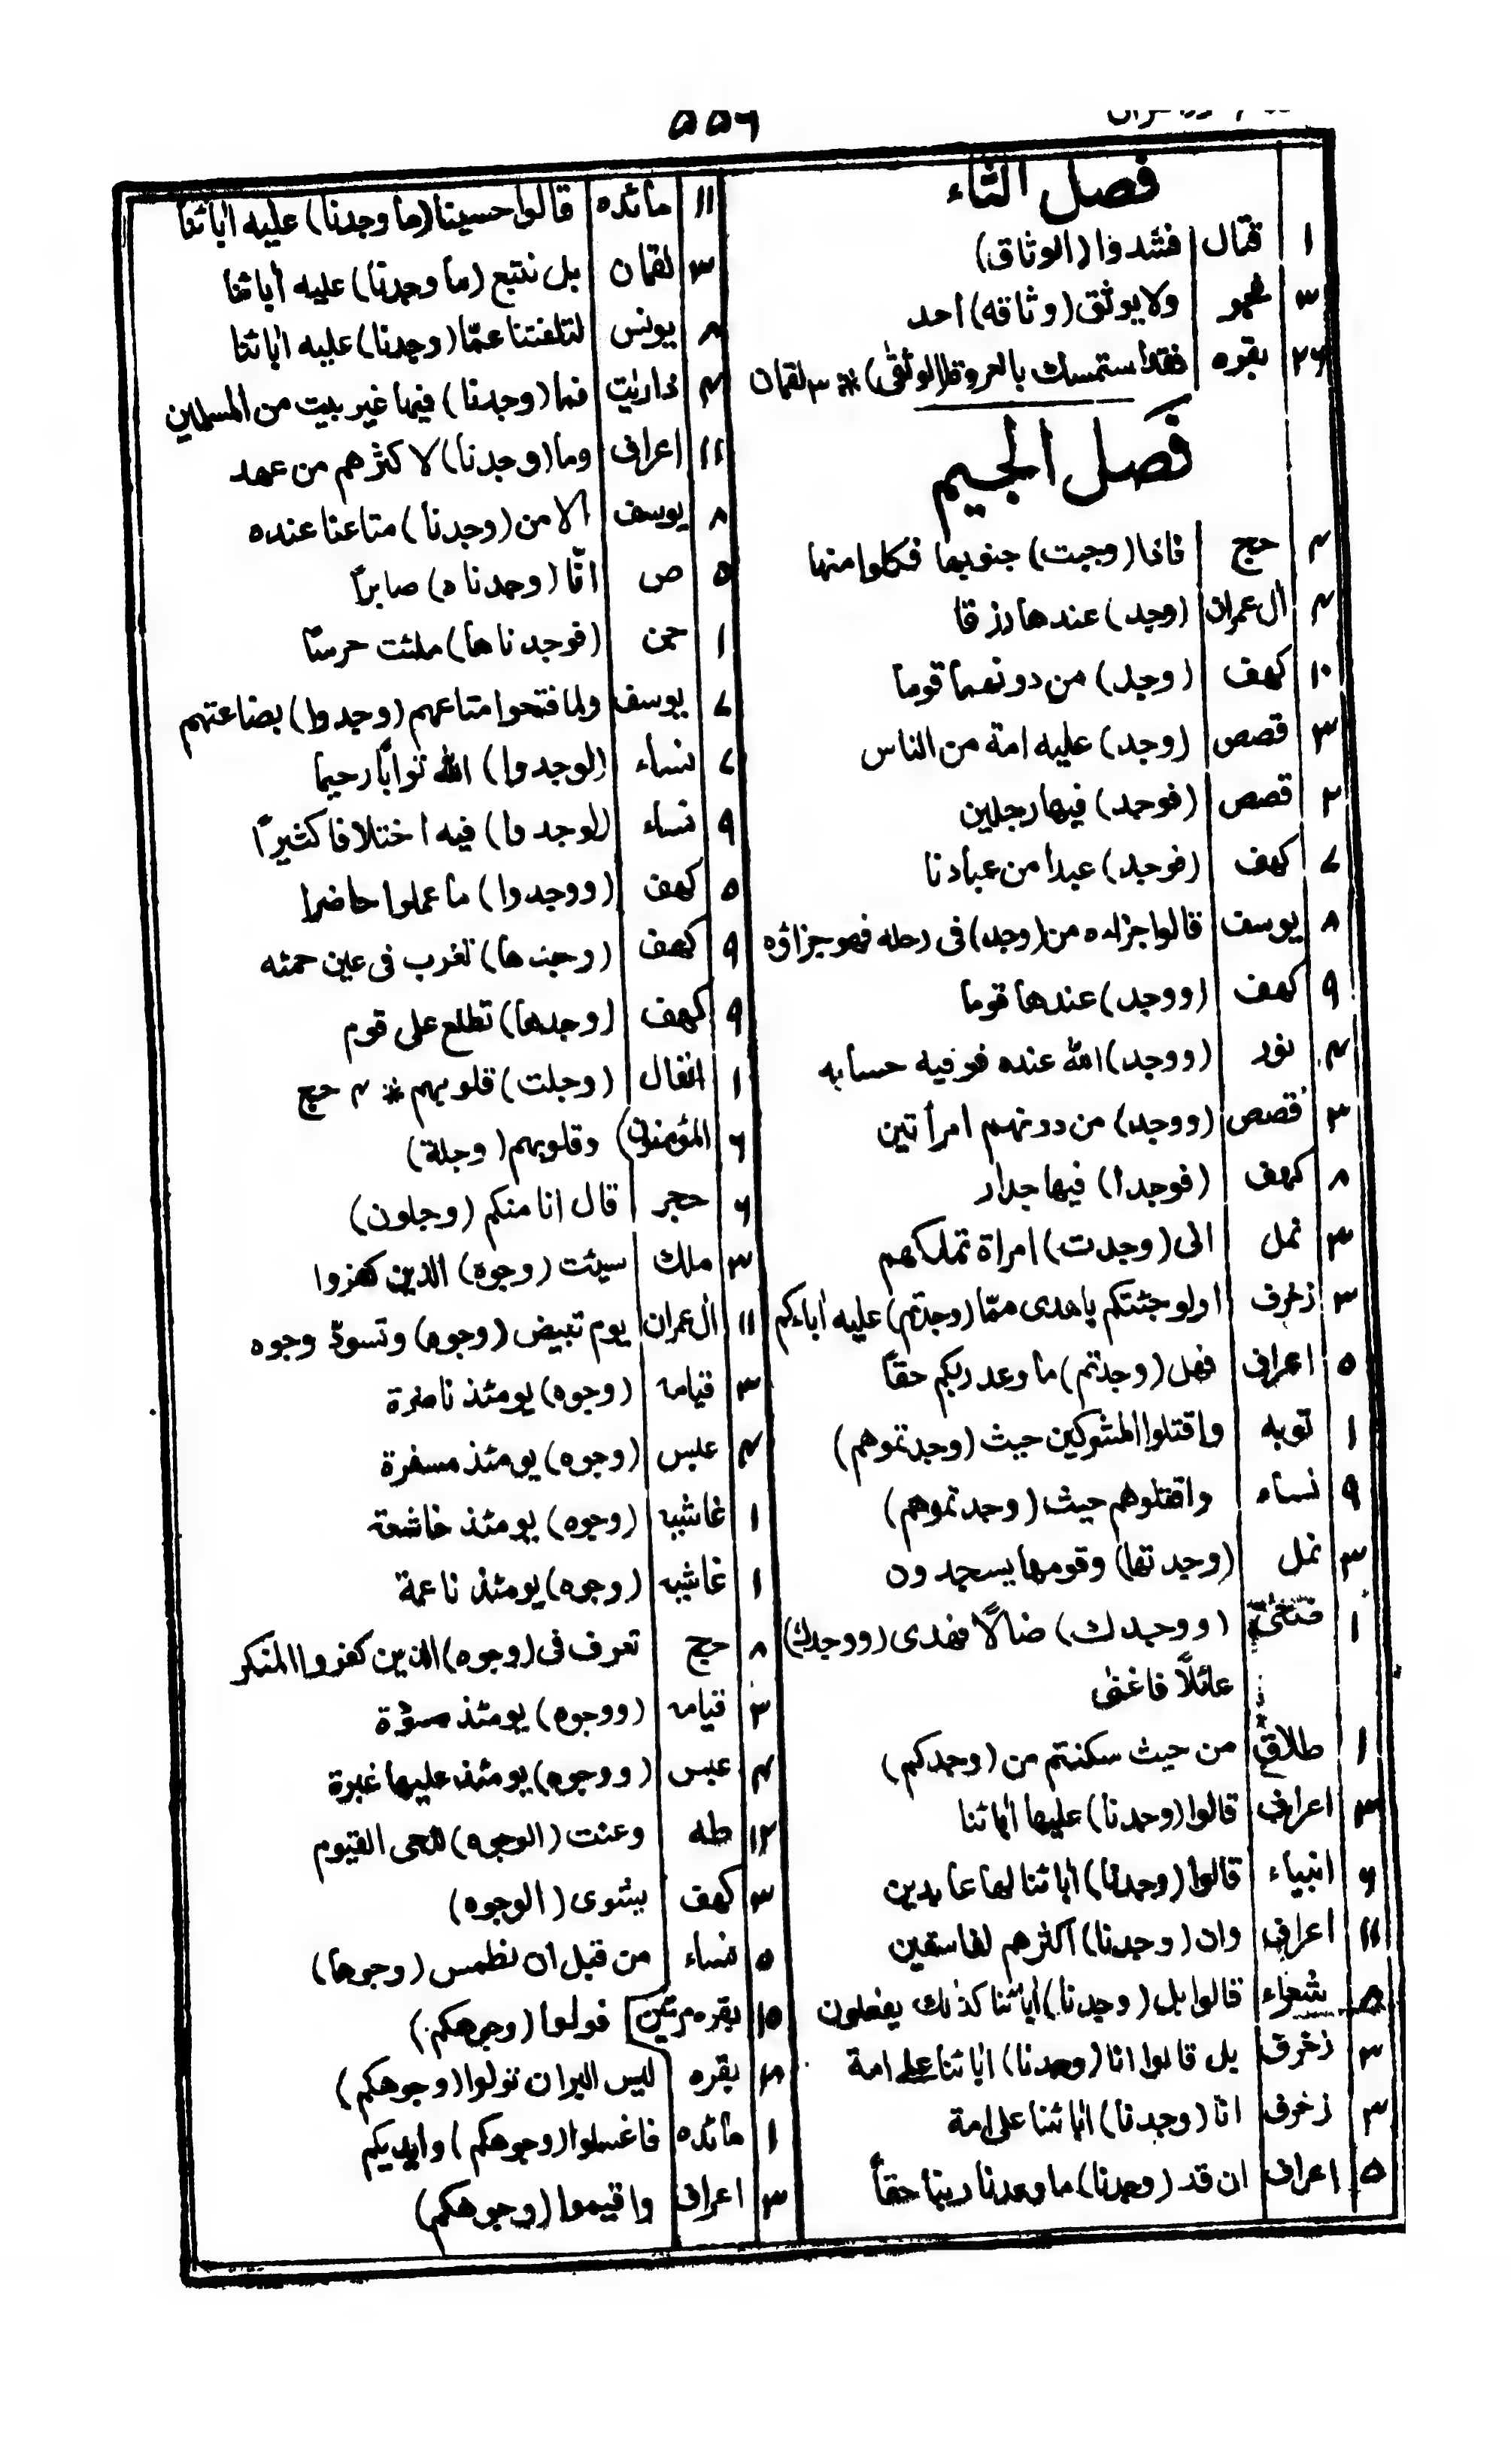 ٥٥٦
فصل الثاء
١ قتال فشدوا (الوثاق)
٣ فجر ولا يوثق (وثاقه) احد
٢٦ بقره فقد استمسك بالعروة (الوثقى) * ٣ لقمان
فصل الجيم
٤ حج فاذا (وجبت) جنوبها فكلوا منها
٤ آل عمران (وجد) عندها رزقا
١٠ كهف (وجد) من دونهما قوما
٣ قصص (وجد) عليه امة من الناس
٢ قصص (فوجد) فيها رجلين
٧ كهف (فوجد) عبدا من عبادنا
٨ يوسف قالوا جزاءه من (وجد) فى رحله فهو جزاؤه
٩ كهف (ووجد) عندها قوما
٤ نور (ووجد) الله عنده فوفيه حسابه
٣ قصص (ووجد) من دونهم امرأتين
٨ كهف (فوجدا) فيها جدار
٣ نمل انى (وجدت) امراة تملكهم
٣ زخرف اولو جئتكم باهدى ممّا (وجدتم) عليه اباءكم
٥ اعراف فهل (وجدتم) ما وعد ربكم حقاً
١ توبه واقتلوا المشركين حيث (وجدتموهم)
٩ نساء واقتلوهم حيث (وجدتموهم)
٣ نمل (وجدتها) وقومها يسجدون
١ ضحى (ووجدك) ضالّاً فهدى (ووجدك)
عائلاً فاغنى
١ طلاق من حيث سكنتم من (وجدكم)
٣ اعراف قالوا (وجدنا) عليها ابائنا
٦ انبياء قالوا (وجدنا) ابائنا لها عابدين
١١ اعراف وان (وجدنا) اكثرهم لفاسقين
٥ شعراء قالوا بل (وجدنا) ابائنا كذلك يفعلون
٣ زخرف بل قالوا انا (وجدنا) ابائنا على امة
٣ زخرف انا (وجدنا) ابائنا على امة
٥ اعراف ان قد (وجدنا) ما وعدنا ربنا حقاً
١١ مائده قالوا حسبنا (ما وجدنا) عليه ابائنا
٣ لقمان بل نتبع (ما وجدنا) عليه ابائنا
٨ يونس لتلفتنا عمّا (وجدنا) عليه ابائنا
٢ ذاريت فما (وجدنا) فيها غير بيت من المسلمين
١١ اعراف وما (وجدنا) لاكثرهم من عهد
٨ يوسف الا من (وجدنا) متاعنا عنده
٥ ص انّا (وجدناه) صابراً
١ جن (فوجدناها) ملئت حرسًا
٧ يوسف ولما فتحوا متاعهم (وجدوا) بضاعتهم
٧ نساء (لوجدوا) الله توابًا رحيما
٩ نساء (لوجدوا) فيه اختلافا كثيراً
٥ كهف (ووجدوا) ما عملوا حاضرا
٩ كهف (وجدها) تغرب فى عين حمئه
٩ كهف (وجدها) تطلع على قوم
١ انفال (وجلت) قلوبهم * ٤ حج
٦ المؤمنون وقلوبهم (وجلة)
٦ حجر قال انا منكم (وجلون)
٣ ملك سيئت (وجوه) الذين كفروا
١١ آل عمران يوم تبيض (وجوه) وتسودّ وجوه
٣ قيامه (وجوه) يومئذ ناضرة
٤ عبس (وجوه) يومئذ مسفرة
١ غاشيه (وجوه) يومئذ خاشعة
١ غاشيه (وجوه) يومئذ ناعمة
٨ حج تعرف فى (وجوه) الذين كفروا المنكر
٣ قيامه (ووجوه) يومئذ
٤ عبس (ووجوه) يومئذ عليها غبرة
١٢ طه وعنت (الوجوه) للحى القيوم
٣ كهف يشوى (الوجوه)
٥ نساء من قبل ان نطمس (وجوها)
١٥ بقره مرتين فولوا (وجوهكم)
٢ بقره ليس البر ان تولوا (وجوهكم)
١ مائده فاغسلوا (وجوهكم) وايديكم
٣ اعراف واقيموا (وجوهكم)